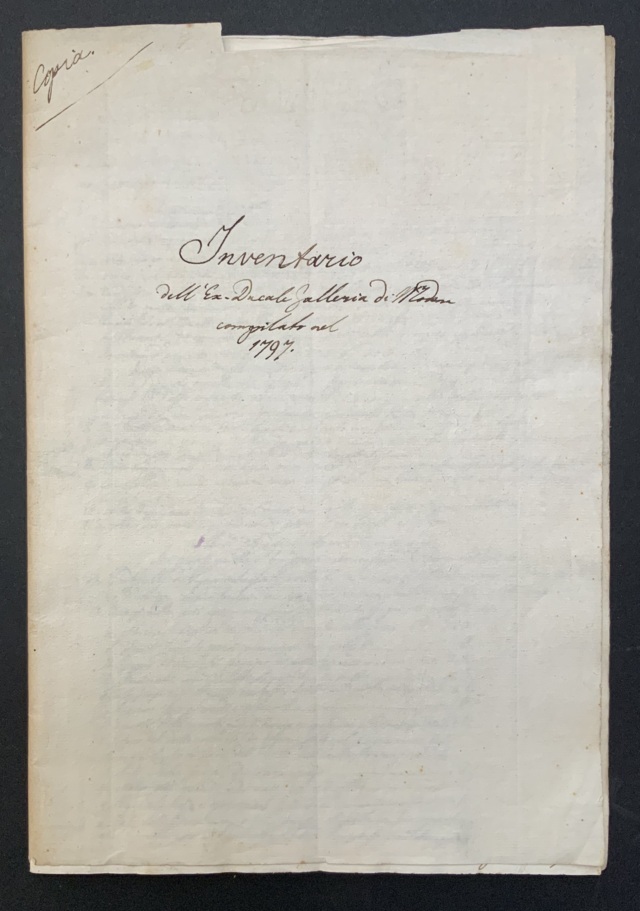 Copia.
Inventario
dell'Ex-Ducale Galleria di Moden
compilato nel
1797.